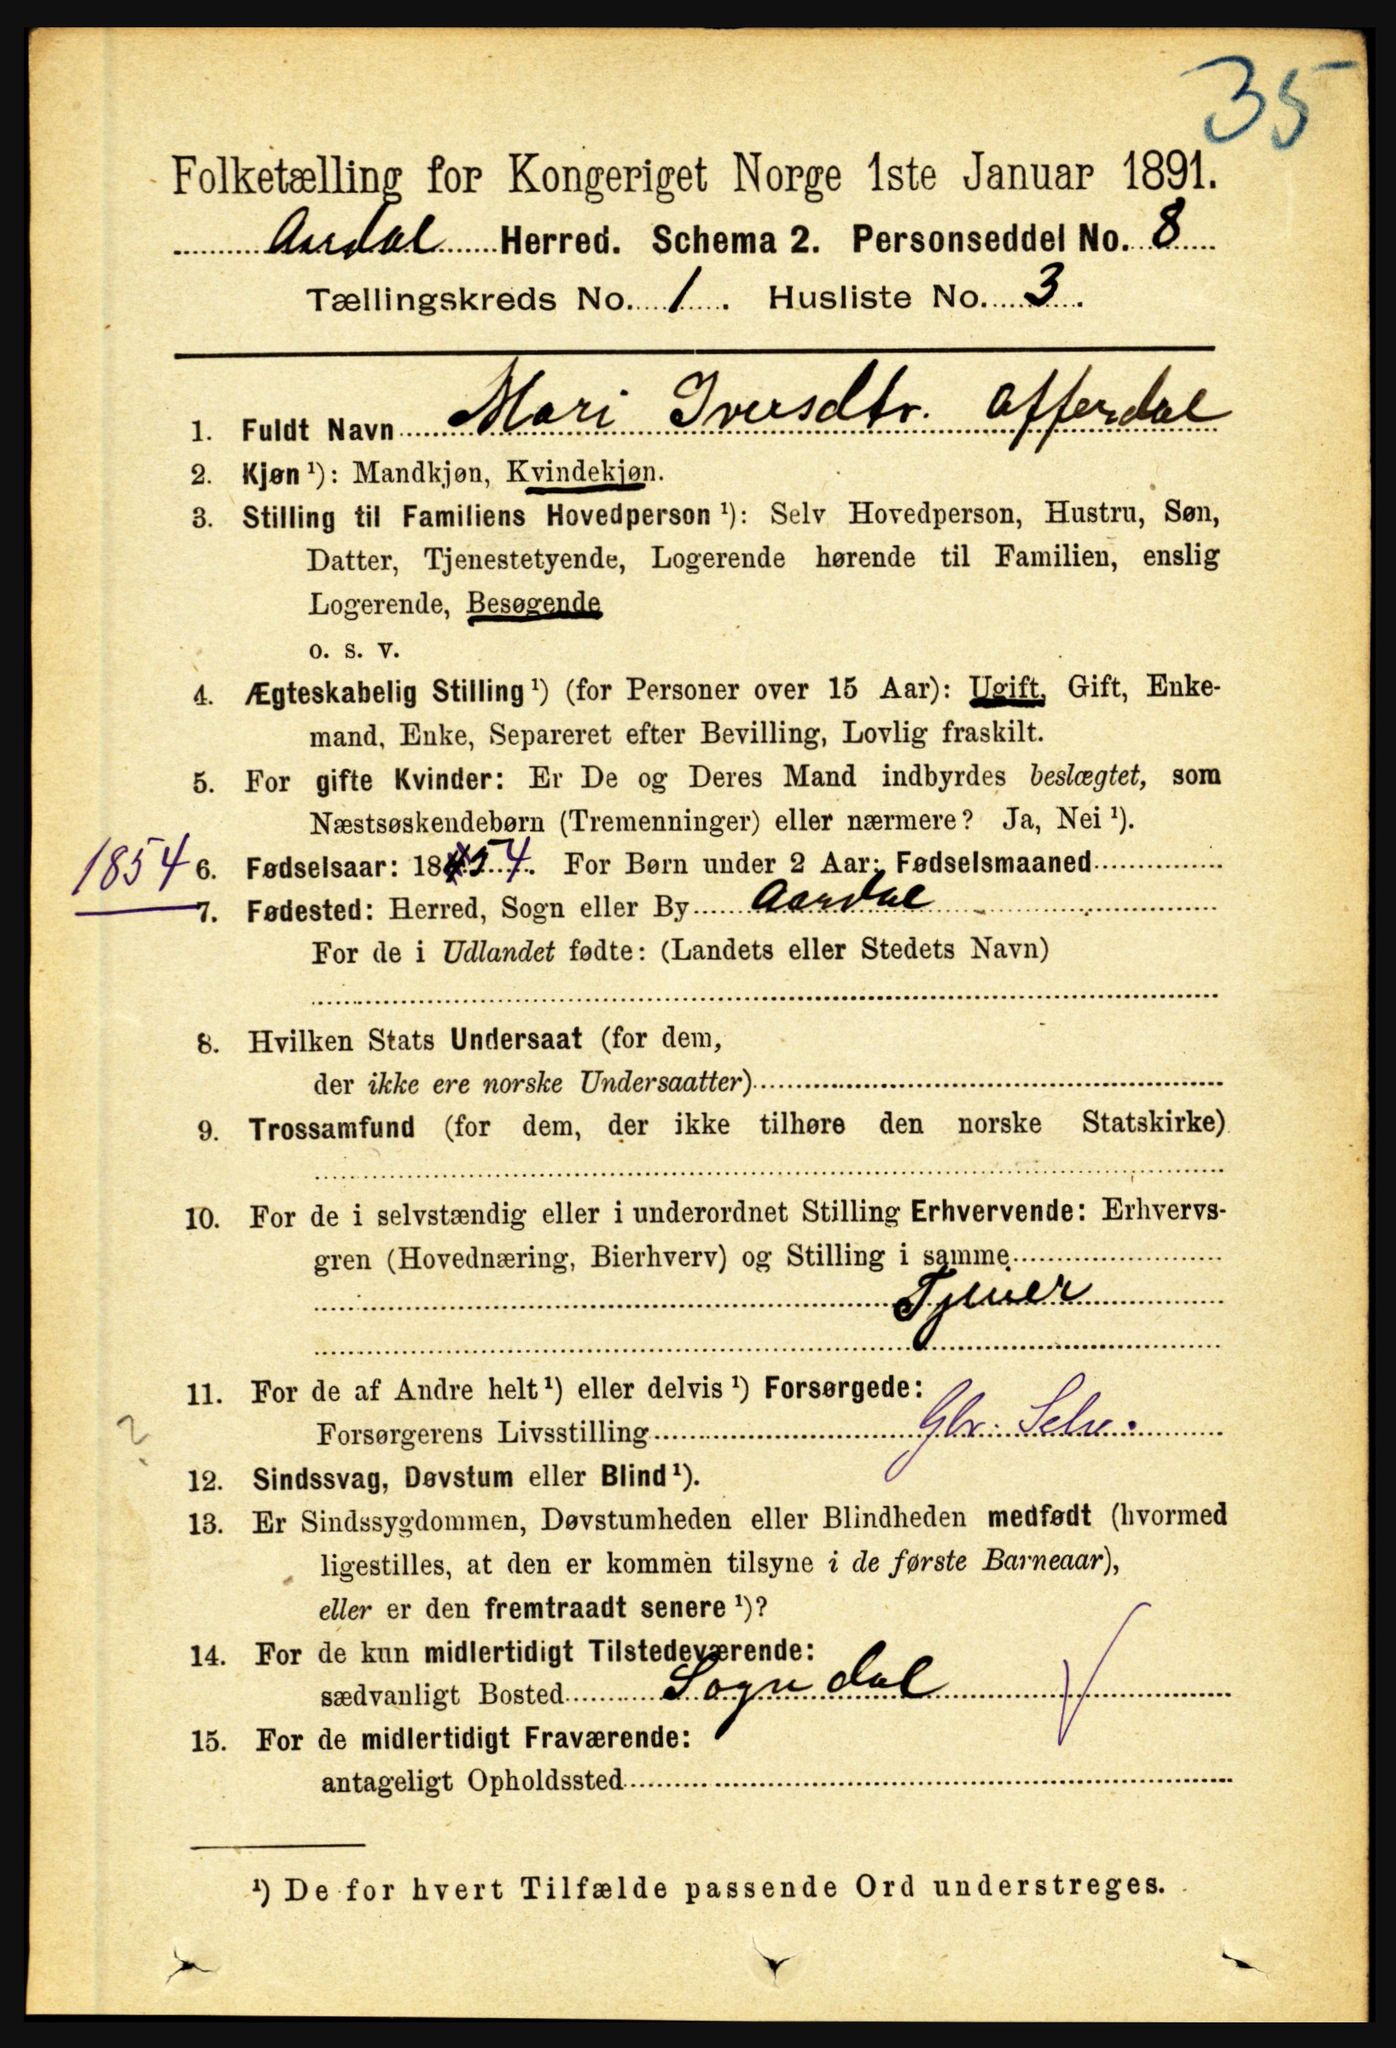 35
Folketælling for Kongeriget Norge 1ste Januar 1891.
Aardal Herred. Schema 2. Personseddel No. 8
Tællingskreds No. 1. Husliste No. 3.
1. Fuldt Navn Mari Iversdtr. Afferdal
2. Kjøn ¹): Mandkjøn, Kvindekjøn.
3. Stilling til Familiens Hovedperson ¹): Selv Hovedperson, Hustru, Søn,
Datter, Tjenestetyende, Logerende hørende til Familien, enslig
Logerende, Besøgende
o. s. v.
4. Ægteskabelig Stilling ¹) (for Personer over 15 Aar): Ugift, Gift, Enke-
mand, Enke, Separeret efter Bevilling, Lovlig fraskilt.
5. For gifte Kvinder: Er De og Deres Mand indbyrdes beslægtet, som
Næstsøskendebørn (Tremenninger) eller nærmere? Ja, Nei ¹).
1854 6. Fødselsaar: 1854. For Børn under 2 Aar: Fødselsmaaned
7. Fødested: Herred, Sogn eller By Aardal
For de i Udlandet fødte: (Landets eller Stedets Navn)
8. Hvilken Stats Undersaat (for dem,
der ikke ere norske Undersaatter)
9. Trossamfund (for dem, der ikke tilhøre den norske Statskirke)
10. For de i selvstændig eller i underordnet Stilling Erhvervende: Erhvervs-
gren (Hovednæring, Bierhverv) og Stilling i samme
11. For de af Andre helt ¹) eller delvis ¹) Forsørgede:
Forsørgerens Livsstilling Gbr. Selv.
?
12. Sindssvag, Døvstum eller Blind ¹).
13. Er Sindssygdommen, Døvstumheden eller Blindheden medfødt (hvormed
ligestilles, at den er kommen tilsyne i de første Barneaar),
eller er den fremtraadt senere ¹)?
14. For de kun midlertidigt Tilstedeværende:
sædvanligt Bosted Sogndal
15. For de midlertidigt Fraværende:
antageligt Opholdssted
¹) De for hvert Tilfælde passende Ord understreges.